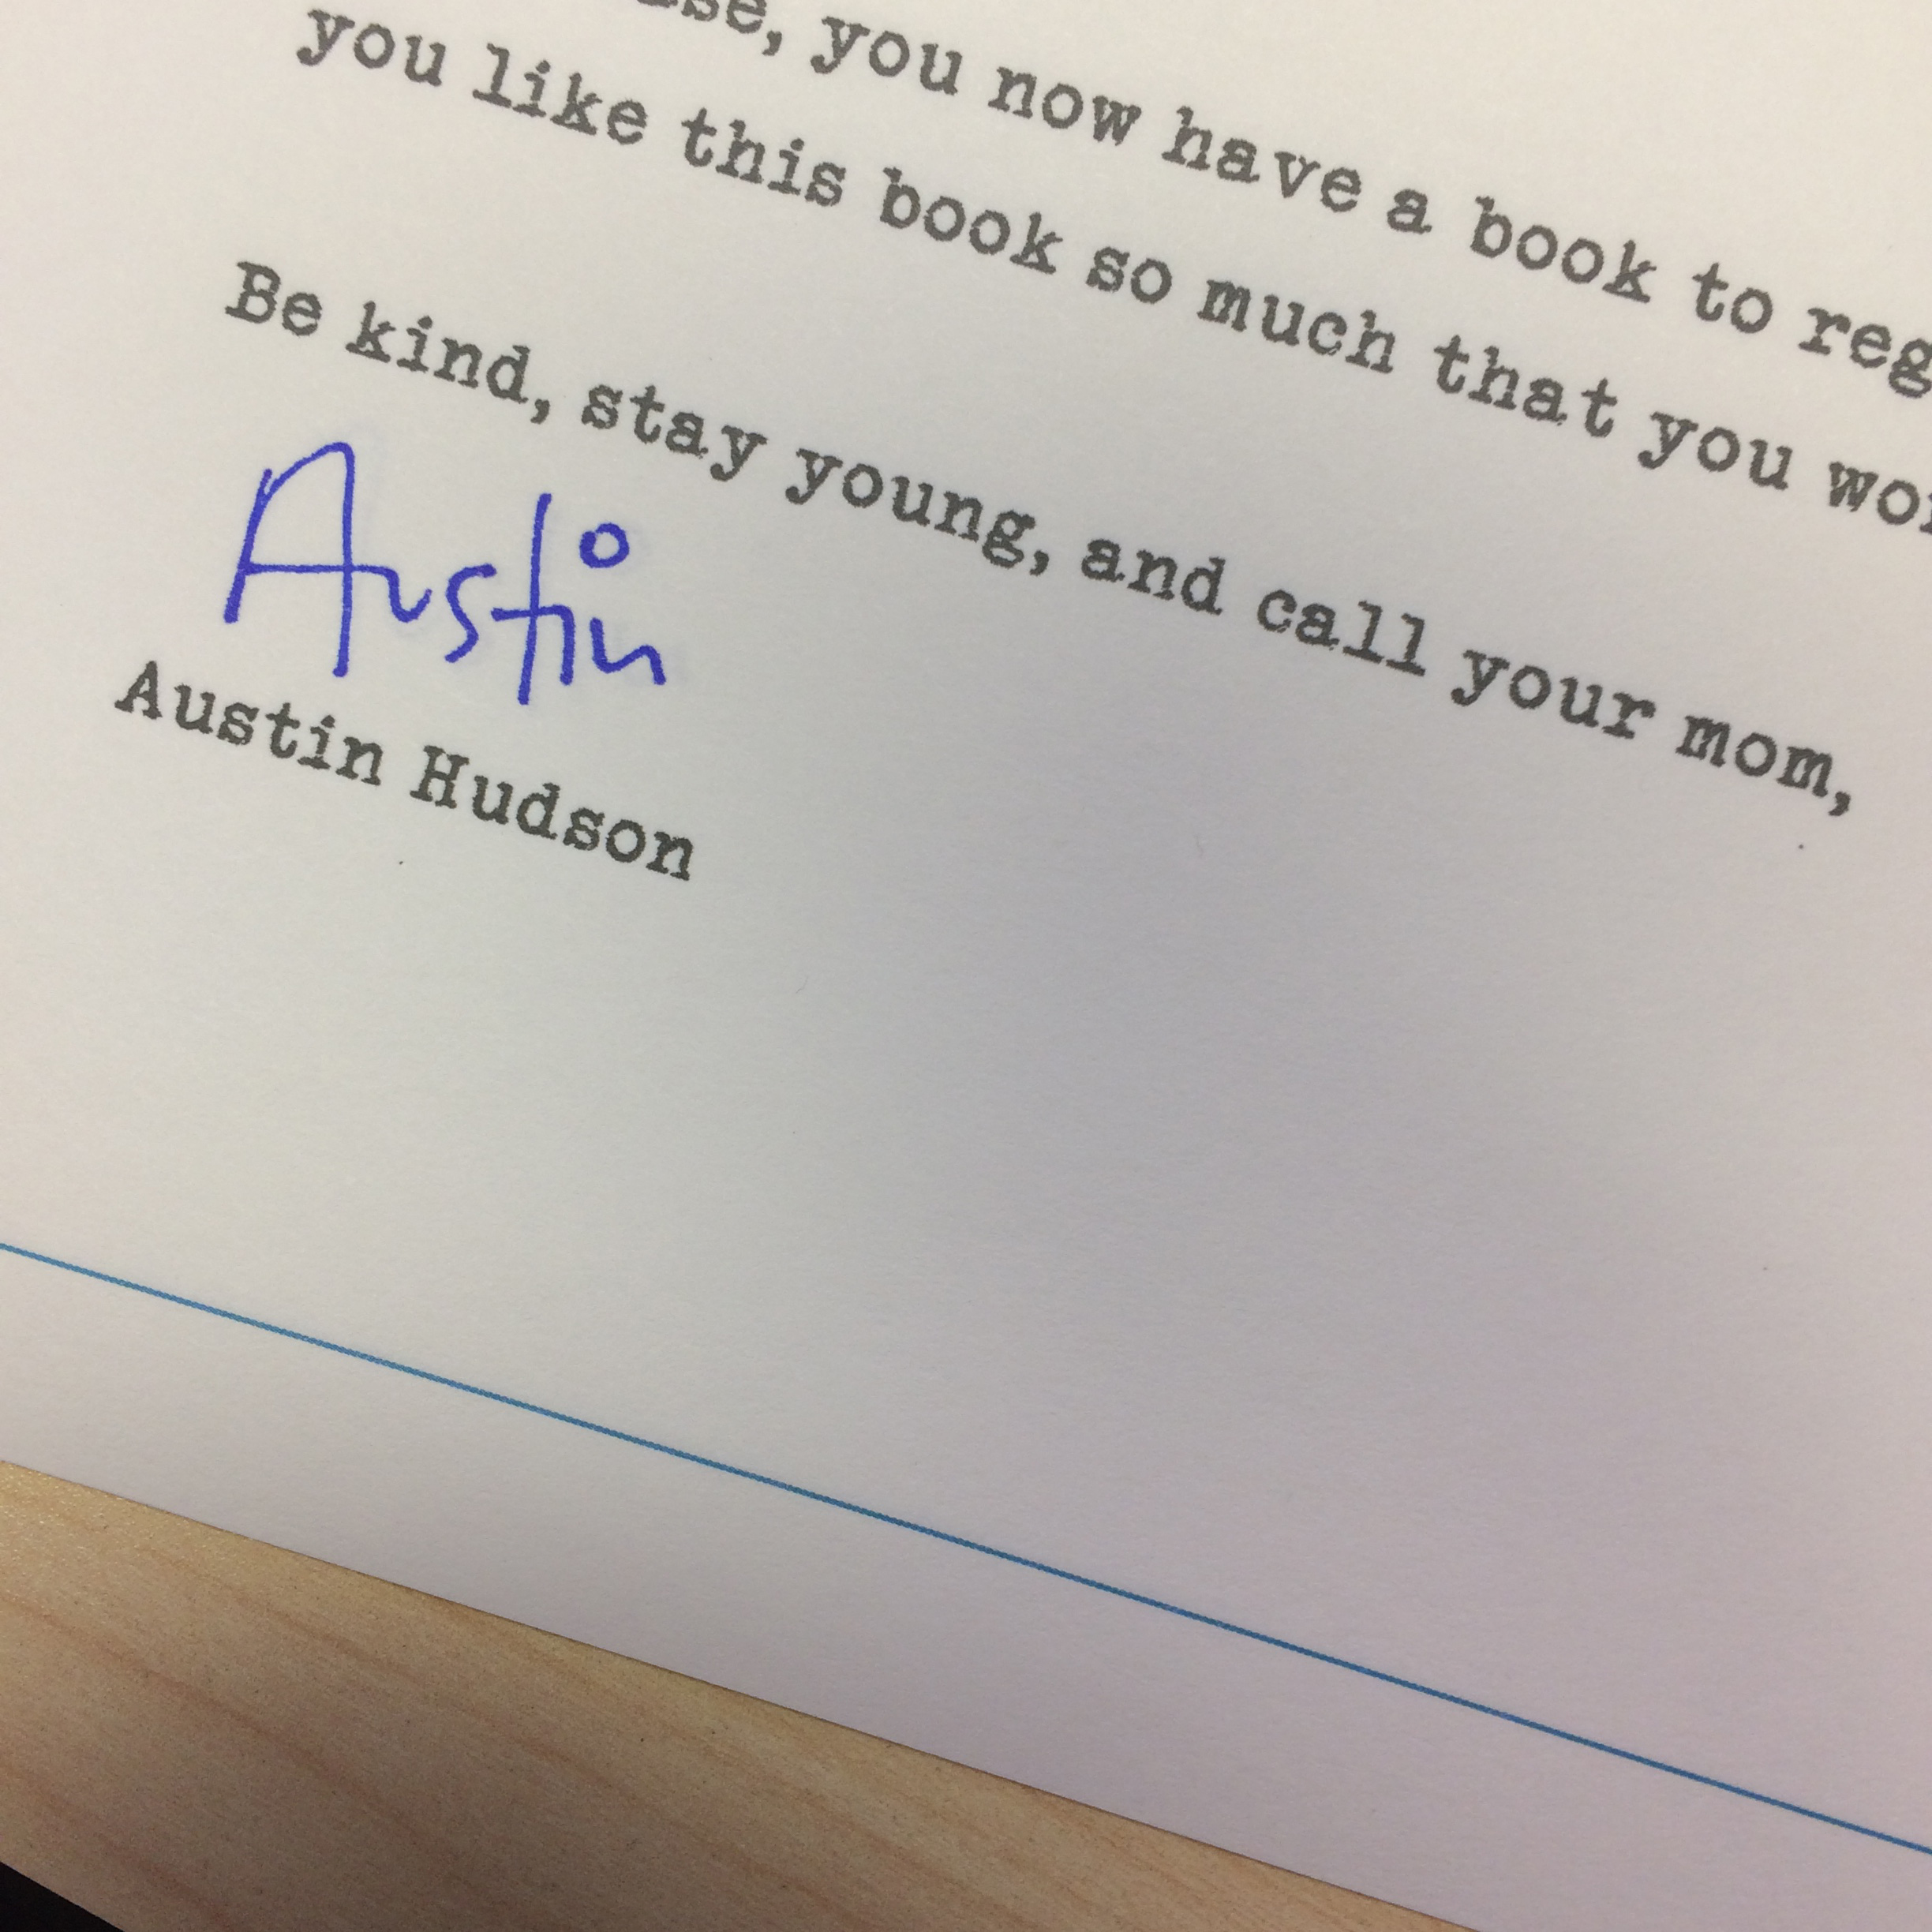 you now have a book to
you like this book so much that you
Be kind, stay young, and call your mom,
Austin
Austin Hudson